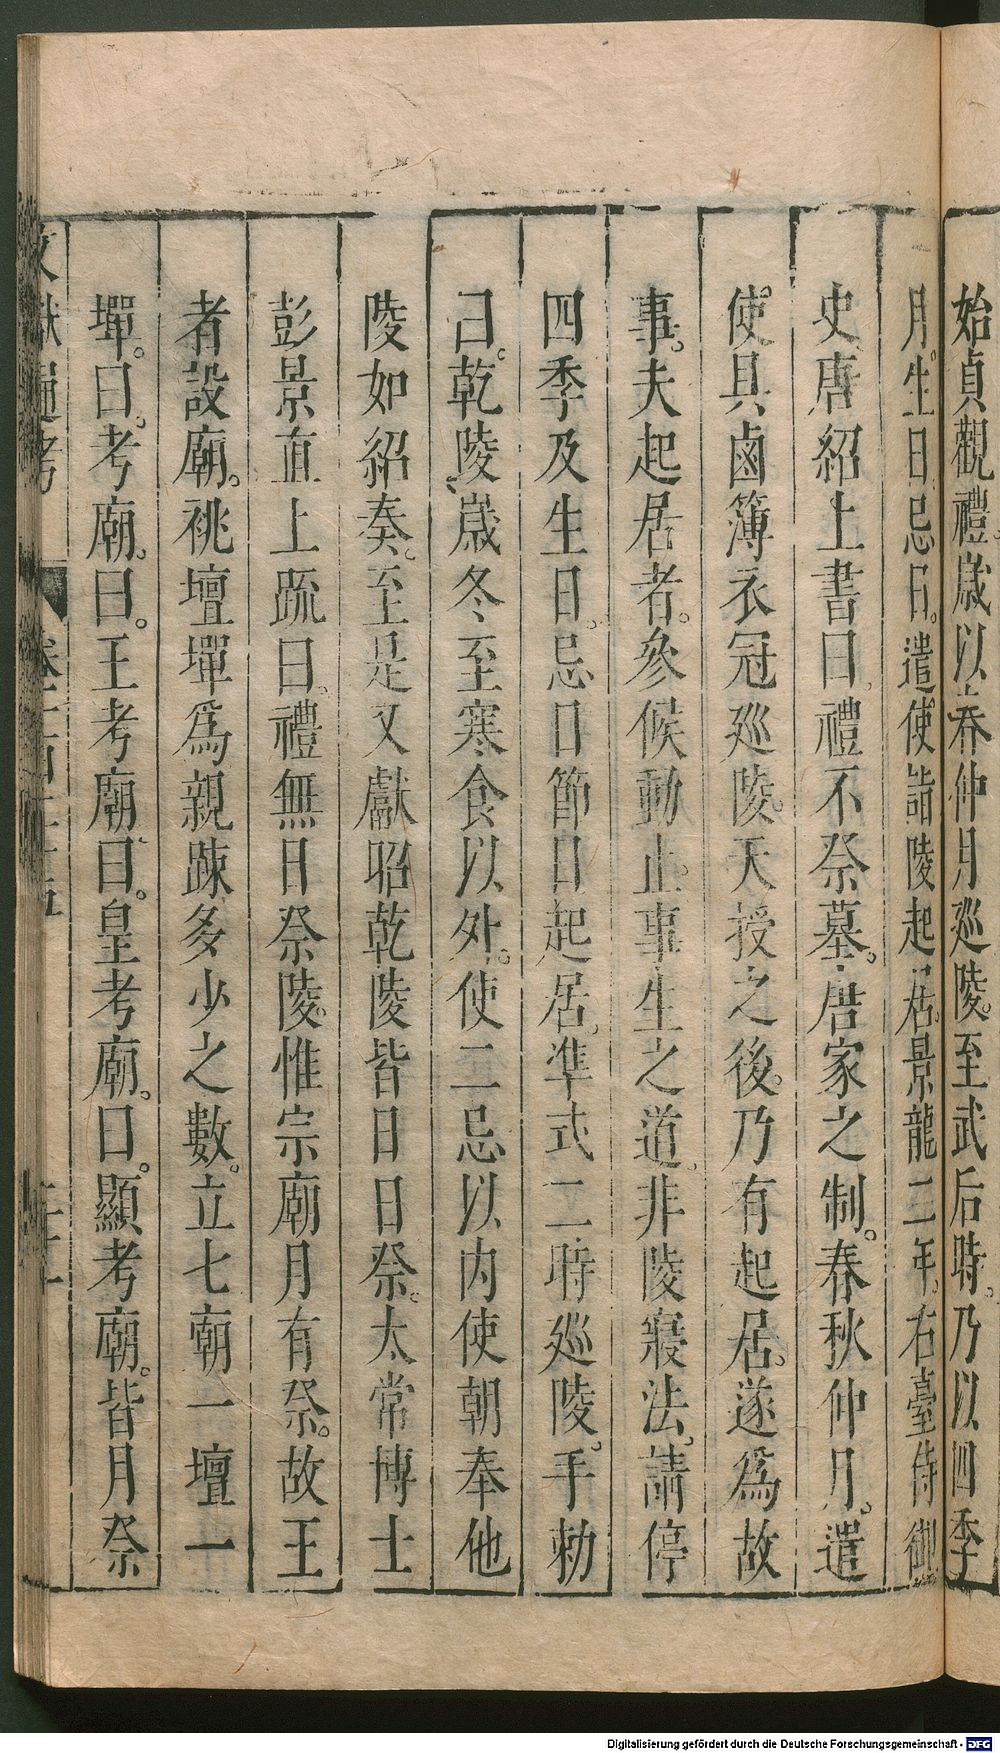 始貞觀禮。歲以春仲月巡陵。至武后時。乃以四季
月。生日忌日。遣使詣陵起居。景龍二年。右臺侍御
史唐紹上書曰。禮不祭墓。唐家之制。春秋仲月。遣
使。具鹵簿衣冠巡陵。天授之後。乃有起居。遂爲故
事。夫起居者。參候動止。事生之道。非陵寢法。請停
四季及生日。忌日節日起居。準式二時巡陵。手勅
曰。乾陵歲冬至寒食以外。使二忌以内使朝奉他
陵如紹奏。至是又獻昭乾陵皆日日祭。太常博士
彭景直上疏曰。禮無日祭陵。惟宗廟月有祭。故王
者設廟。祧壇墠爲親疎多少之數。立七廟一壇一
墠。曰。考廟。曰。王考廟。曰。皇考廟。曰。顯考廟。皆月祭
文獻通考 卷一百二十五
Digitalisierung gefördert durch die Deutsche Forschungsgemeinschaft - DFG